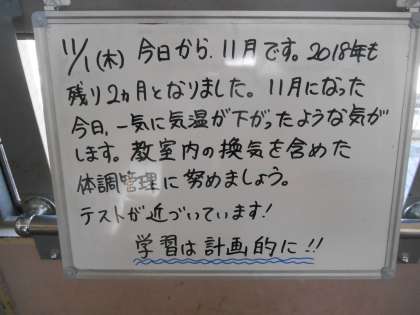 11/1(木) 今日から、11月です。2018年も
残り2ヵ月となりました。11月になった
今日、一気に気温が下がったような気が
します。教室内の換気を含めた
体調管理に努めましょう。
テストが近づいています!
学習は計画的に!!